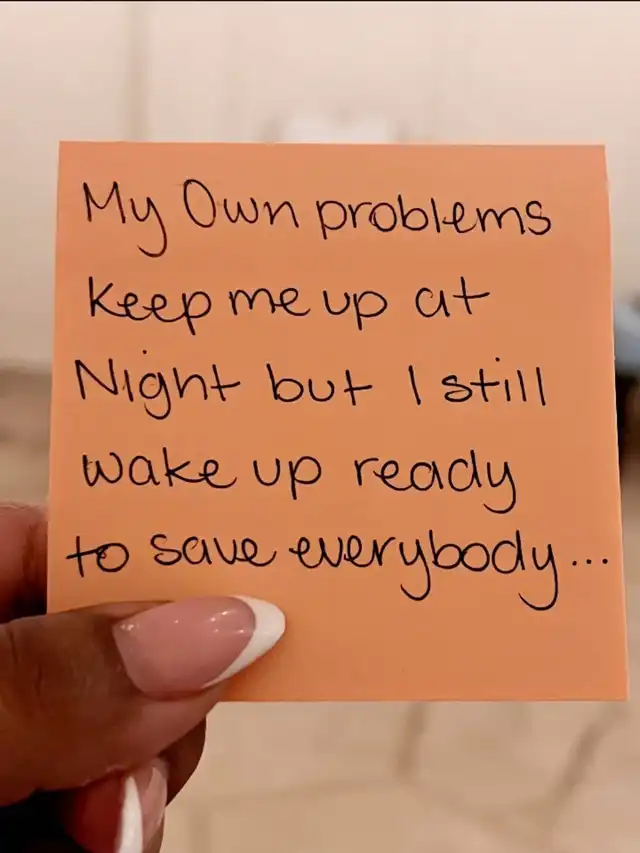 My Own problems
keep me up at
Night but I still
wake up ready
to save everybody...